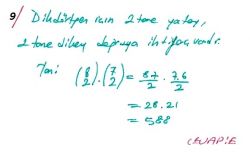 9) Dikdörtgen için 2 tane yatay,
2 tane dikey doğruya ihtiyaç vardır.
Yani (8 2).(7 2) = 8.7/2 . 7.6/2
= 28.21
= 588
CEVAP:E